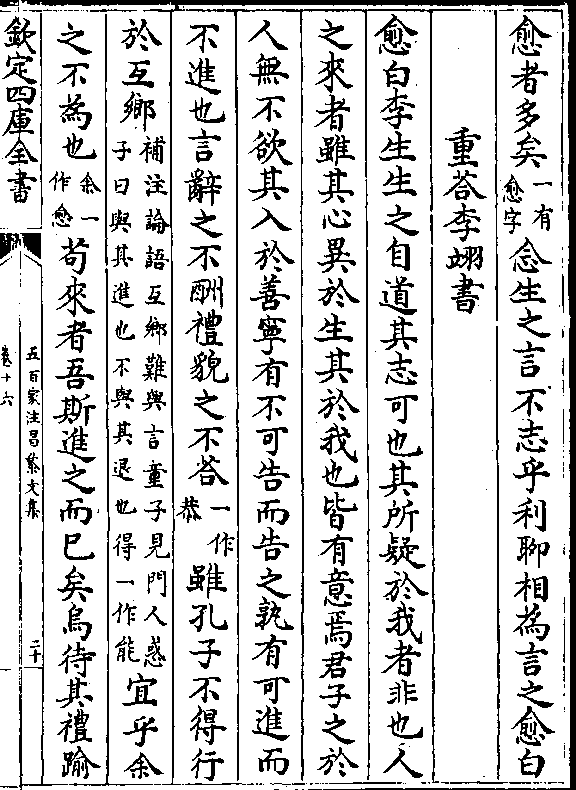 愈者多矣一有愈字念生之言不志乎利聊相為言之愈白
重荅李翊書
愈白李生生之自道其志可也其所疑於我者非也人
之來者雖其心異於生其於我也皆有意焉君子之於
人無不欲其入於善寧有不可告而告之孰有可進而
不進也言辭之不酬禮貌之不荅一作恭雖孔子不得行
於互鄉補注論語互鄉難與言童子見門人惑子曰與其進也不與其退也得一作能宜乎余
之不為也余一作愈苟來者吾斯進之而已矣烏待其禮踰
欽定四庫全書
五百家注昌黎文集
卷十六
二十